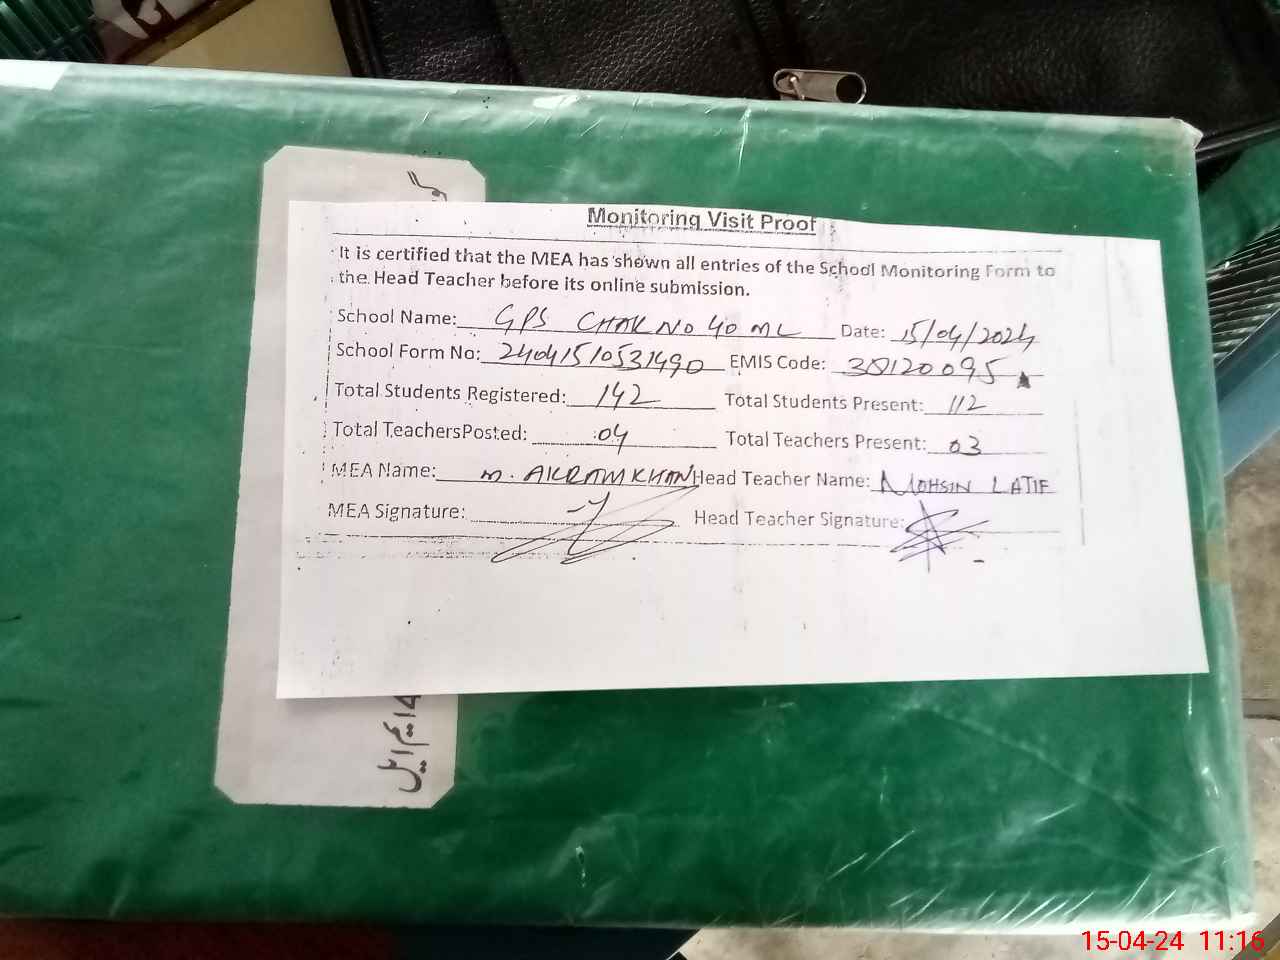 Monitoring Visit Proof
It is certified that the MEA has shown all entries of the School Monitoring Form to
the Head Teacher before its online submission.
School Name: GPS CHAK NO 40 ML Date: 15/04/2024
School Form No: 24041510531490 EMIS Code: 30120095
Total Students Registered: 142 Total Students Present: 112
Total TeachersPosted: 04 Total Teachers Present: 03
MEA Name: M. AKRAM KHAN Head Teacher Name: MOHSIN LATIF
MEA Signature: Head Teacher Signature:
ایم ایل
15-04-24 11:16